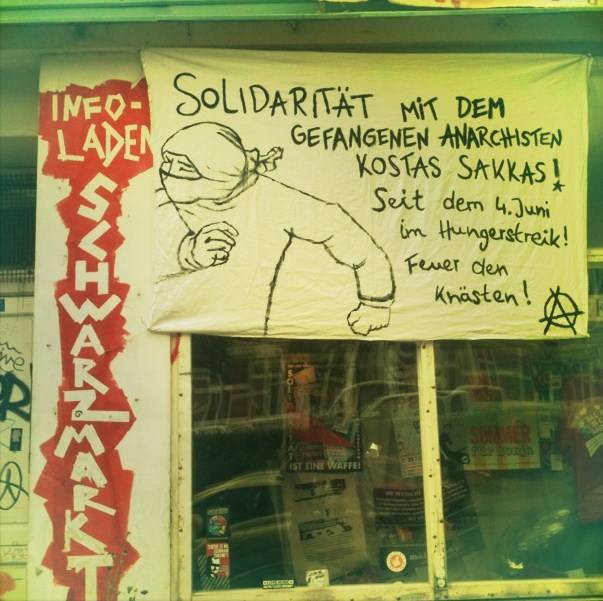 INFO-
LADEN
SCHWARZMARKT
SOLIDARITÄT MIT DEM
GEFANGENEN ANARCHISTEN
KOSTAS SAKKAS!
Seit dem 4. Juni
im Hungerstreik!
Feuer den
Knästen!
IST EINE WAFFE!
SOMMER